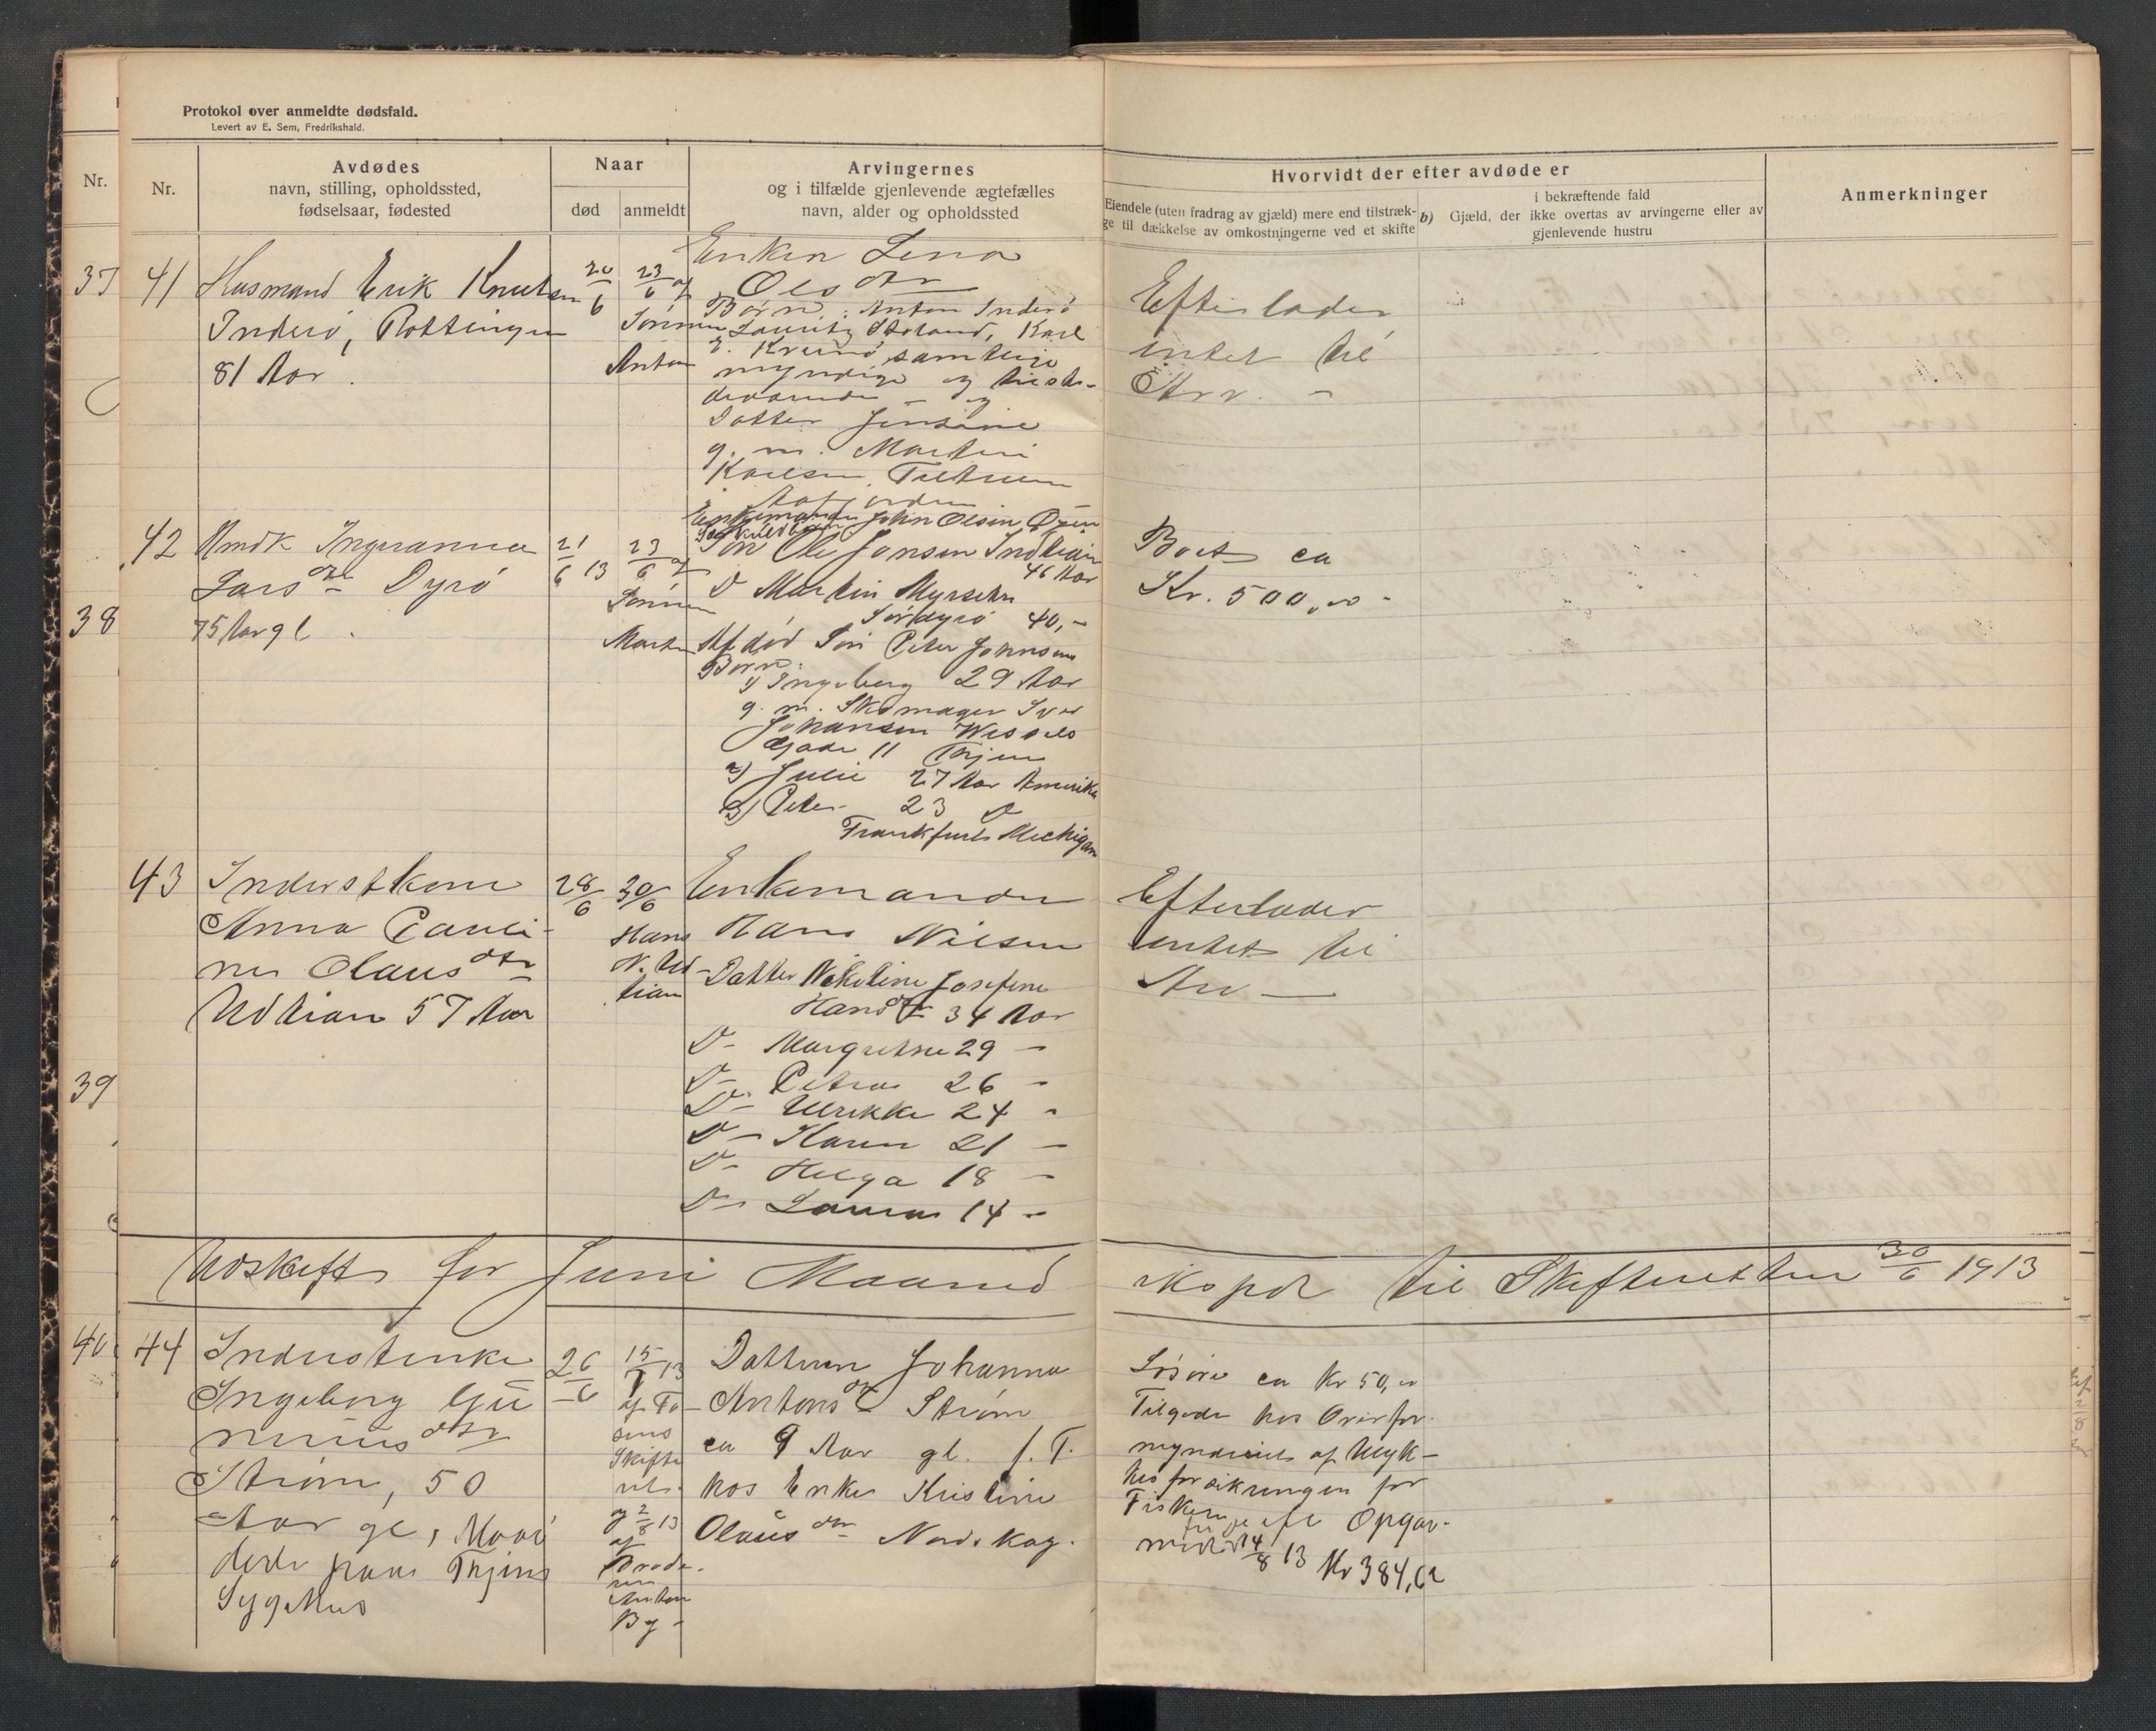 Protokol over anmeldte dødsfald.
Levert av E. Sem, Fredrikshald.
Nr.
Nr.
Avdødes
navn, stilling, opholdssted,
fødselsaar, fødested
Naar
død
anmeldt
Arvingernes
og i tilfælde gjenlevende ægtefælles
navn, alder og opholdssted
Hvorvidt der efter avdøde er
Eiendele (uten fradrag av gjæld) mere end tilstræk-
ge til dækkelse av omkostningerne ved et skifte
b) Gjæld, der ikke overtas av arvingerne eller av
i bekræftende fald
gjenlevende hustru
Anmerkninger
37
38
39
40
41
Husmand Erik Knutsen
Inderø, Rottingen
81 Aar.
20/6
23/6 af
Sønnen
Anton
Enken Lena
Olsdtr
Børn: Anton Inderø
Lauritz, Karl
E. samtlige
myndige og tilste-
deværende - og
Datter Jensine
g. m. Martin
Karlsen
Efterlader
intet til
Arv. -
42
Ingeranna
Larsdtr Dyrø
75 Aar gl.
21/6 13
23/6 af
Sønnen
Martin
Enkemanden John Olsen
Særkuldbarn
Søn Ole Jonsen
46 Aar
D Martin Myrsetn
Sørdyrø 40,-
Afdød Søn Peter Johnsens
Børn:
1) Ingeborg 29 Aar
g. m. Skomager Iver
Johansen Wessels
Gade 11 Thjem
2) Julie 27 Aar Amerika
3) Peter 23 D
Frankfurt Mechigan
Boet ca
Kr. 500,00 -
43
Inderstkone
Anna Pauli-
ne Olausdtr
Udtian 57 Aar
28/6
30/6
Hans
N. Ud-
tian
Enkemanden
Hans Nilsen
Datter Nikoline Josefine
Hansdtr 34 Aar
D- Margrethe 29 -
D- Petra 26 -
D- Ulrikke 24 -
D- Karen 21 -
D- Helga 18 -
D- Laura 14 -
Efterlader
intet til
Arv -
Udskrift for Juni Maaned
exped til Skifteretten 30/6 1913
44
Inderstenke
Ingeborg Gu
dtr
Strøm, 50
Aar gl,
døde paa Thjems
Sygehus
26/6
15/7 13
af Fo-
sens
Skifte
ret.
og 2/8 13
af
Brode-
ren
Anton
By -
Datteren Johanna
Antonsdtr Strøm
ca 9 Aar gl. f. T.
hos Enke Kristine
Olausdtr Nordskag.
Løsøre ca Kr 50,00
Tilgode hos Overfor-
mynderiet af Ulyk-
kesforsikringen for
Fiskere Opgav-
14/8 13 Kr 384,62